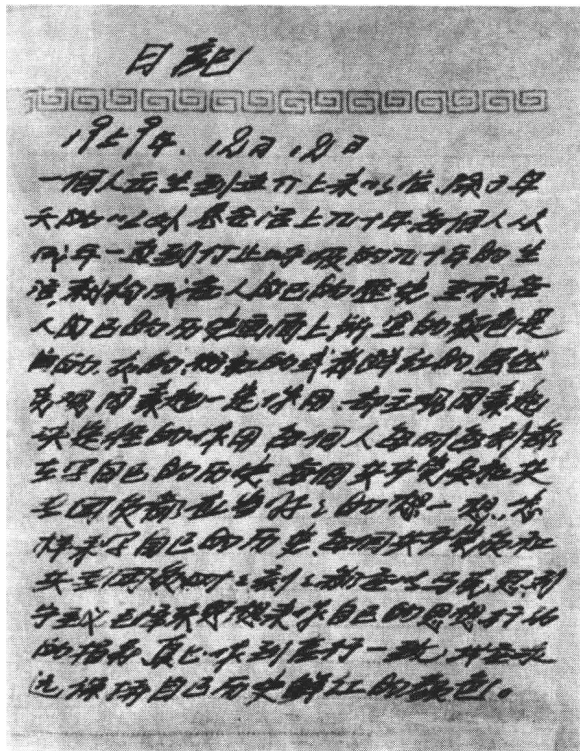 日記
1959年.12月12日
一個人出生到世介上来以后,除了早
夭的以外,总要活上几十年每個人从
成年一直到停止呼吸的几十年的生
活,就构成各人自己的歷史,至於各
人自己的历史画面上所塗的颜色是
白的,灰的,粉红的或者鲜红的,虽然
客观因素起一定作用,却主观因素起
决定性的作用,每個人每时每刻都
在写自己的历史,每個共产党员和共
青团员都应当好〻的想一想,怎
样来写自己的历史,每個共产党员和
共青团员时〻刻〻都要以马克思列
宁主义毛泽东思想来作自己的思想行动
的指南,真正做到言行一致,才能永
远保持自己历史鲜红的颜色。